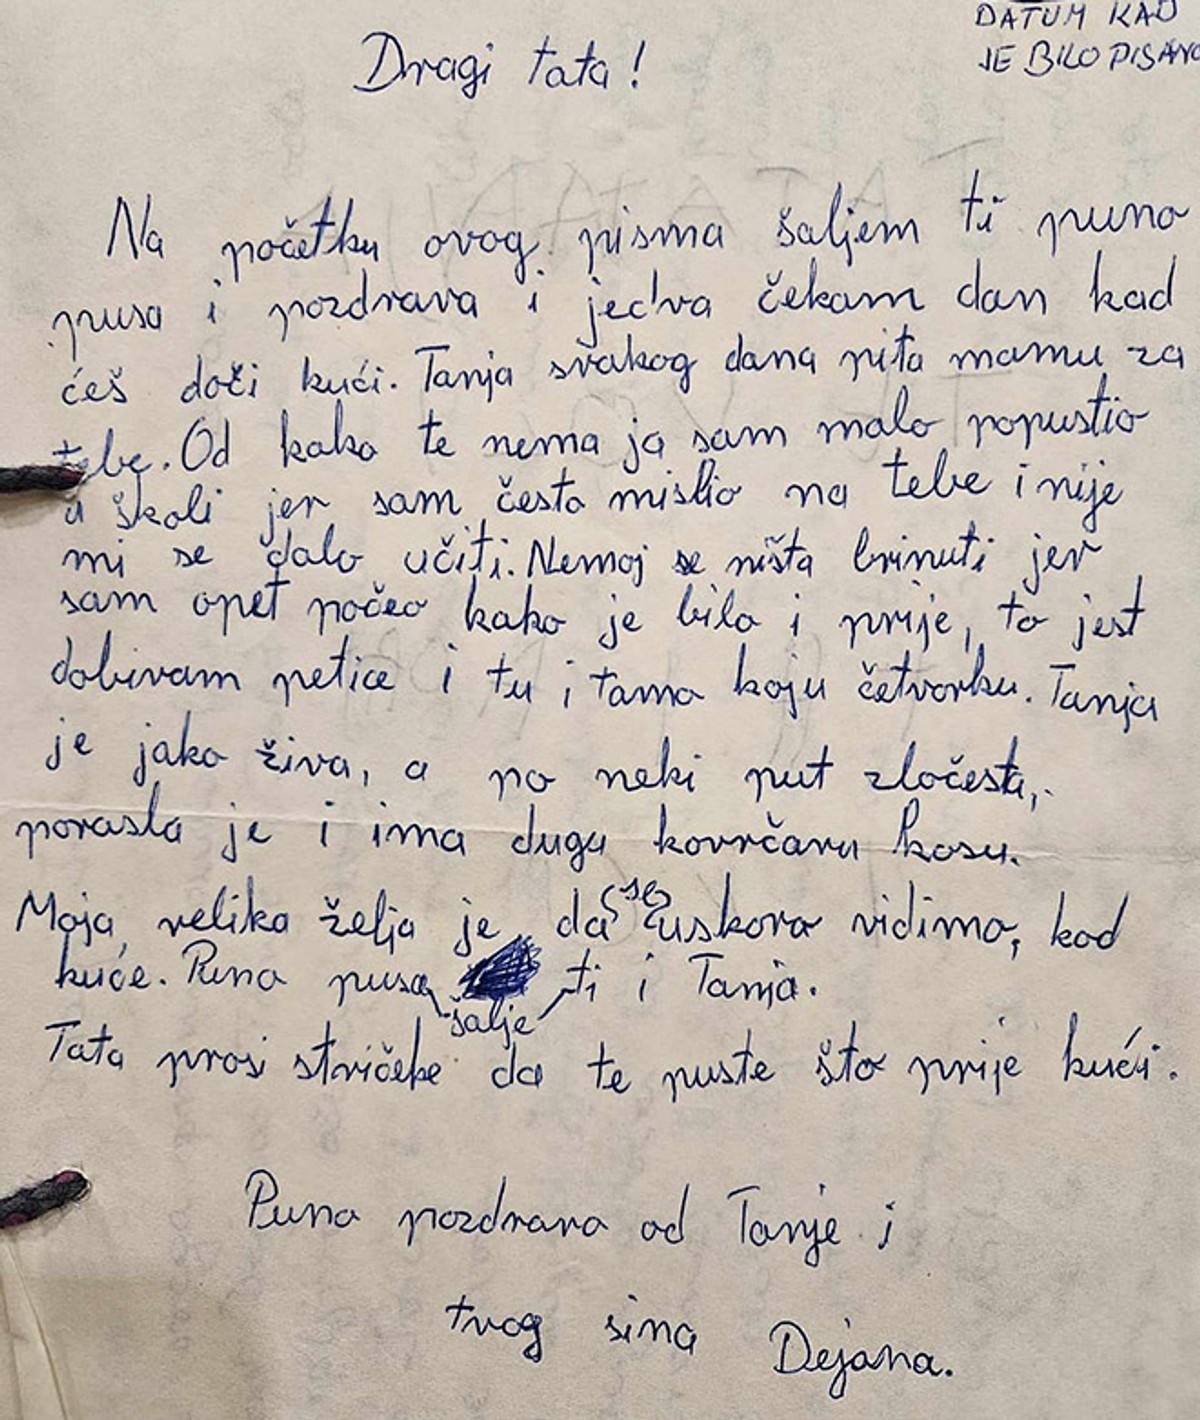 DATUM KAD
JE BILO PISANO
Dragi tata!
Na početku ovog pisma šaljem ti puno
pusa i pozdrava i jedva čekam dan kad
ćeš doči kući. Tanja svakog dana pita mamu za
tebe. Od kako te nema ja sam malo popustio
u školi jer sam često mislio na tebe i nije
mi se dalo učiti. Nemoj se ništa brinuti jer
sam opet počeo kako je bilo i prije, to jest
dobivam petice i tu i tamo koju četvorku. Tanja
je jako živa, a po neki put zločesta,
porasla je i ima dugu kovrčavu kosu.
Moja velika želja je da se uskoro vidimo, kod
kuće. Puno pusa šalje ti i Tanja.
Tata prosi stričeke da te puste što prije kući.
Puno pozdrava od Tanje i
tvog sina Dejana.